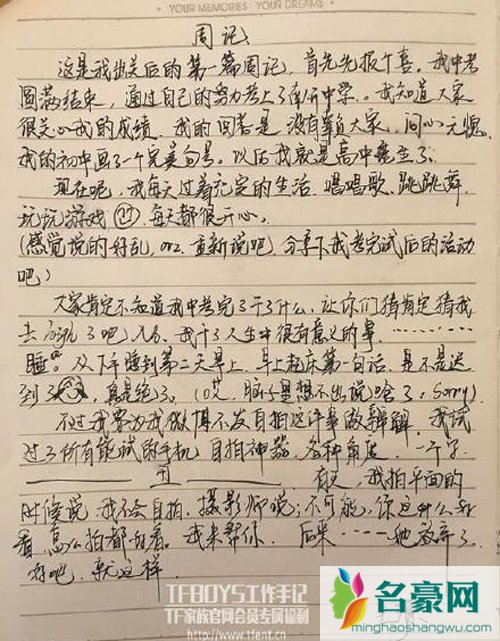 YOUR MEMORIES · YOUR DREAMS
周记
这是我出关后的第一篇周记,首先先报个喜。我中考
圆满结束,通过自己的努力考上了南开中学。我知道大家
很关心我的成绩,我的回答是没有辜负大家,问心无愧
我的初中画了一个完美句号。以后我就是高中生了。
现在呢,我每天过着充实的生活 唱唱歌 跳跳舞
玩玩游戏 每天都很开心。
(感觉说的好乱,orz 重新说吧 分享下我考完试后的活动
吧)
大家肯定不知道我中考完了干了什么 让你们猜肯定猜我
去 了吧 No 我干了人生中很有意义的事 ………
睡。从下午睡到第二天早上,早上起床第一句话,是不是迟
到了 真是绝了。(哎,脑子里想不出说啥了,Sorry)
不过我要为我微博不发自拍这件事做辩解 我试
过了所有能试的手机 自拍神器 各种角度 一个字
丑 有次,我拍平面的
时候说,我不会自拍,摄影师说:不可能,你这么好
看,怎么拍都好看。我来帮你。后来……她放弃了
好吧,就这样
TFBOYS工作手记
TF家族官网会员专属福利
http://www.tfent.cn
名豪网
minghaoshangwu.com